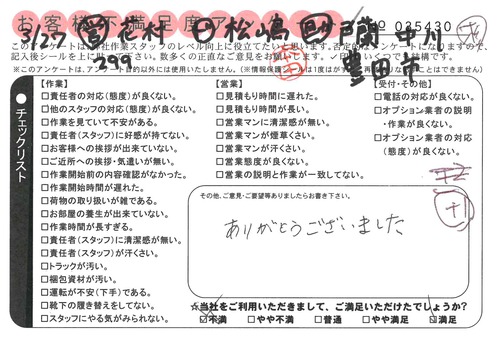 お客様不満足度ア
№ 025430
3/27 営 花村 松嶋 戸蘭 中川
299 豊田市
このアンケートは弊社作業スタッフのレベル向上に役立てたいと思います。否定的なアンケートになりますので、
記入後シールを上に貼って下さい。
※このアンケートは、アンケート目的以外には使用いたしません。
チェックリスト
【作業】
□責任者の対応(態度)が良くない。
□他のスタッフの対応(態度)が良くない。
□作業を見ていて不安がある。
□責任者(スタッフ)に好感が持てない。
□お客様への挨拶が出来ていない。
□ご近所への挨拶・気遣いが無い。
□作業開始前の内容確認がなかった。
□作業開始時間が遅れた。
□荷物の取り扱いが雑である。
□お部屋の養生が出来ていない。
□作業時間が長すぎる。
□責任者(スタッフ)に清潔感が無い。
□責任者(スタッフ)が汗くさい。
□トラックが汚い。
□梱包資材が汚い。
□運転が不安(下手)である。
□靴下の履き替えをしてない。
□スタッフにやる気がみられない。
【営業】
□見積もり時間に遅れた。
□見積もり時間が長い。
□営業マンに清潔感が無い。
□営業マンが煙草くさい。
□営業マンが汗くさい。
□営業態度が良くない。
□営業の説明と作業が一致してない。
【受付・その他】
□電話の対応が良くない。
□オプション業者の説明
・作業が良くない。
□オプション業者の対応
(態度)が良くない。
その他、ご意見・ご要望等ありましたらお書き下さい。
ありがとうございました
+1
☆当社をご利用いただきまして、ご満足いただけたでしょうか?
☑不満 □やや不満 □普通 □やや満足 ☑満足